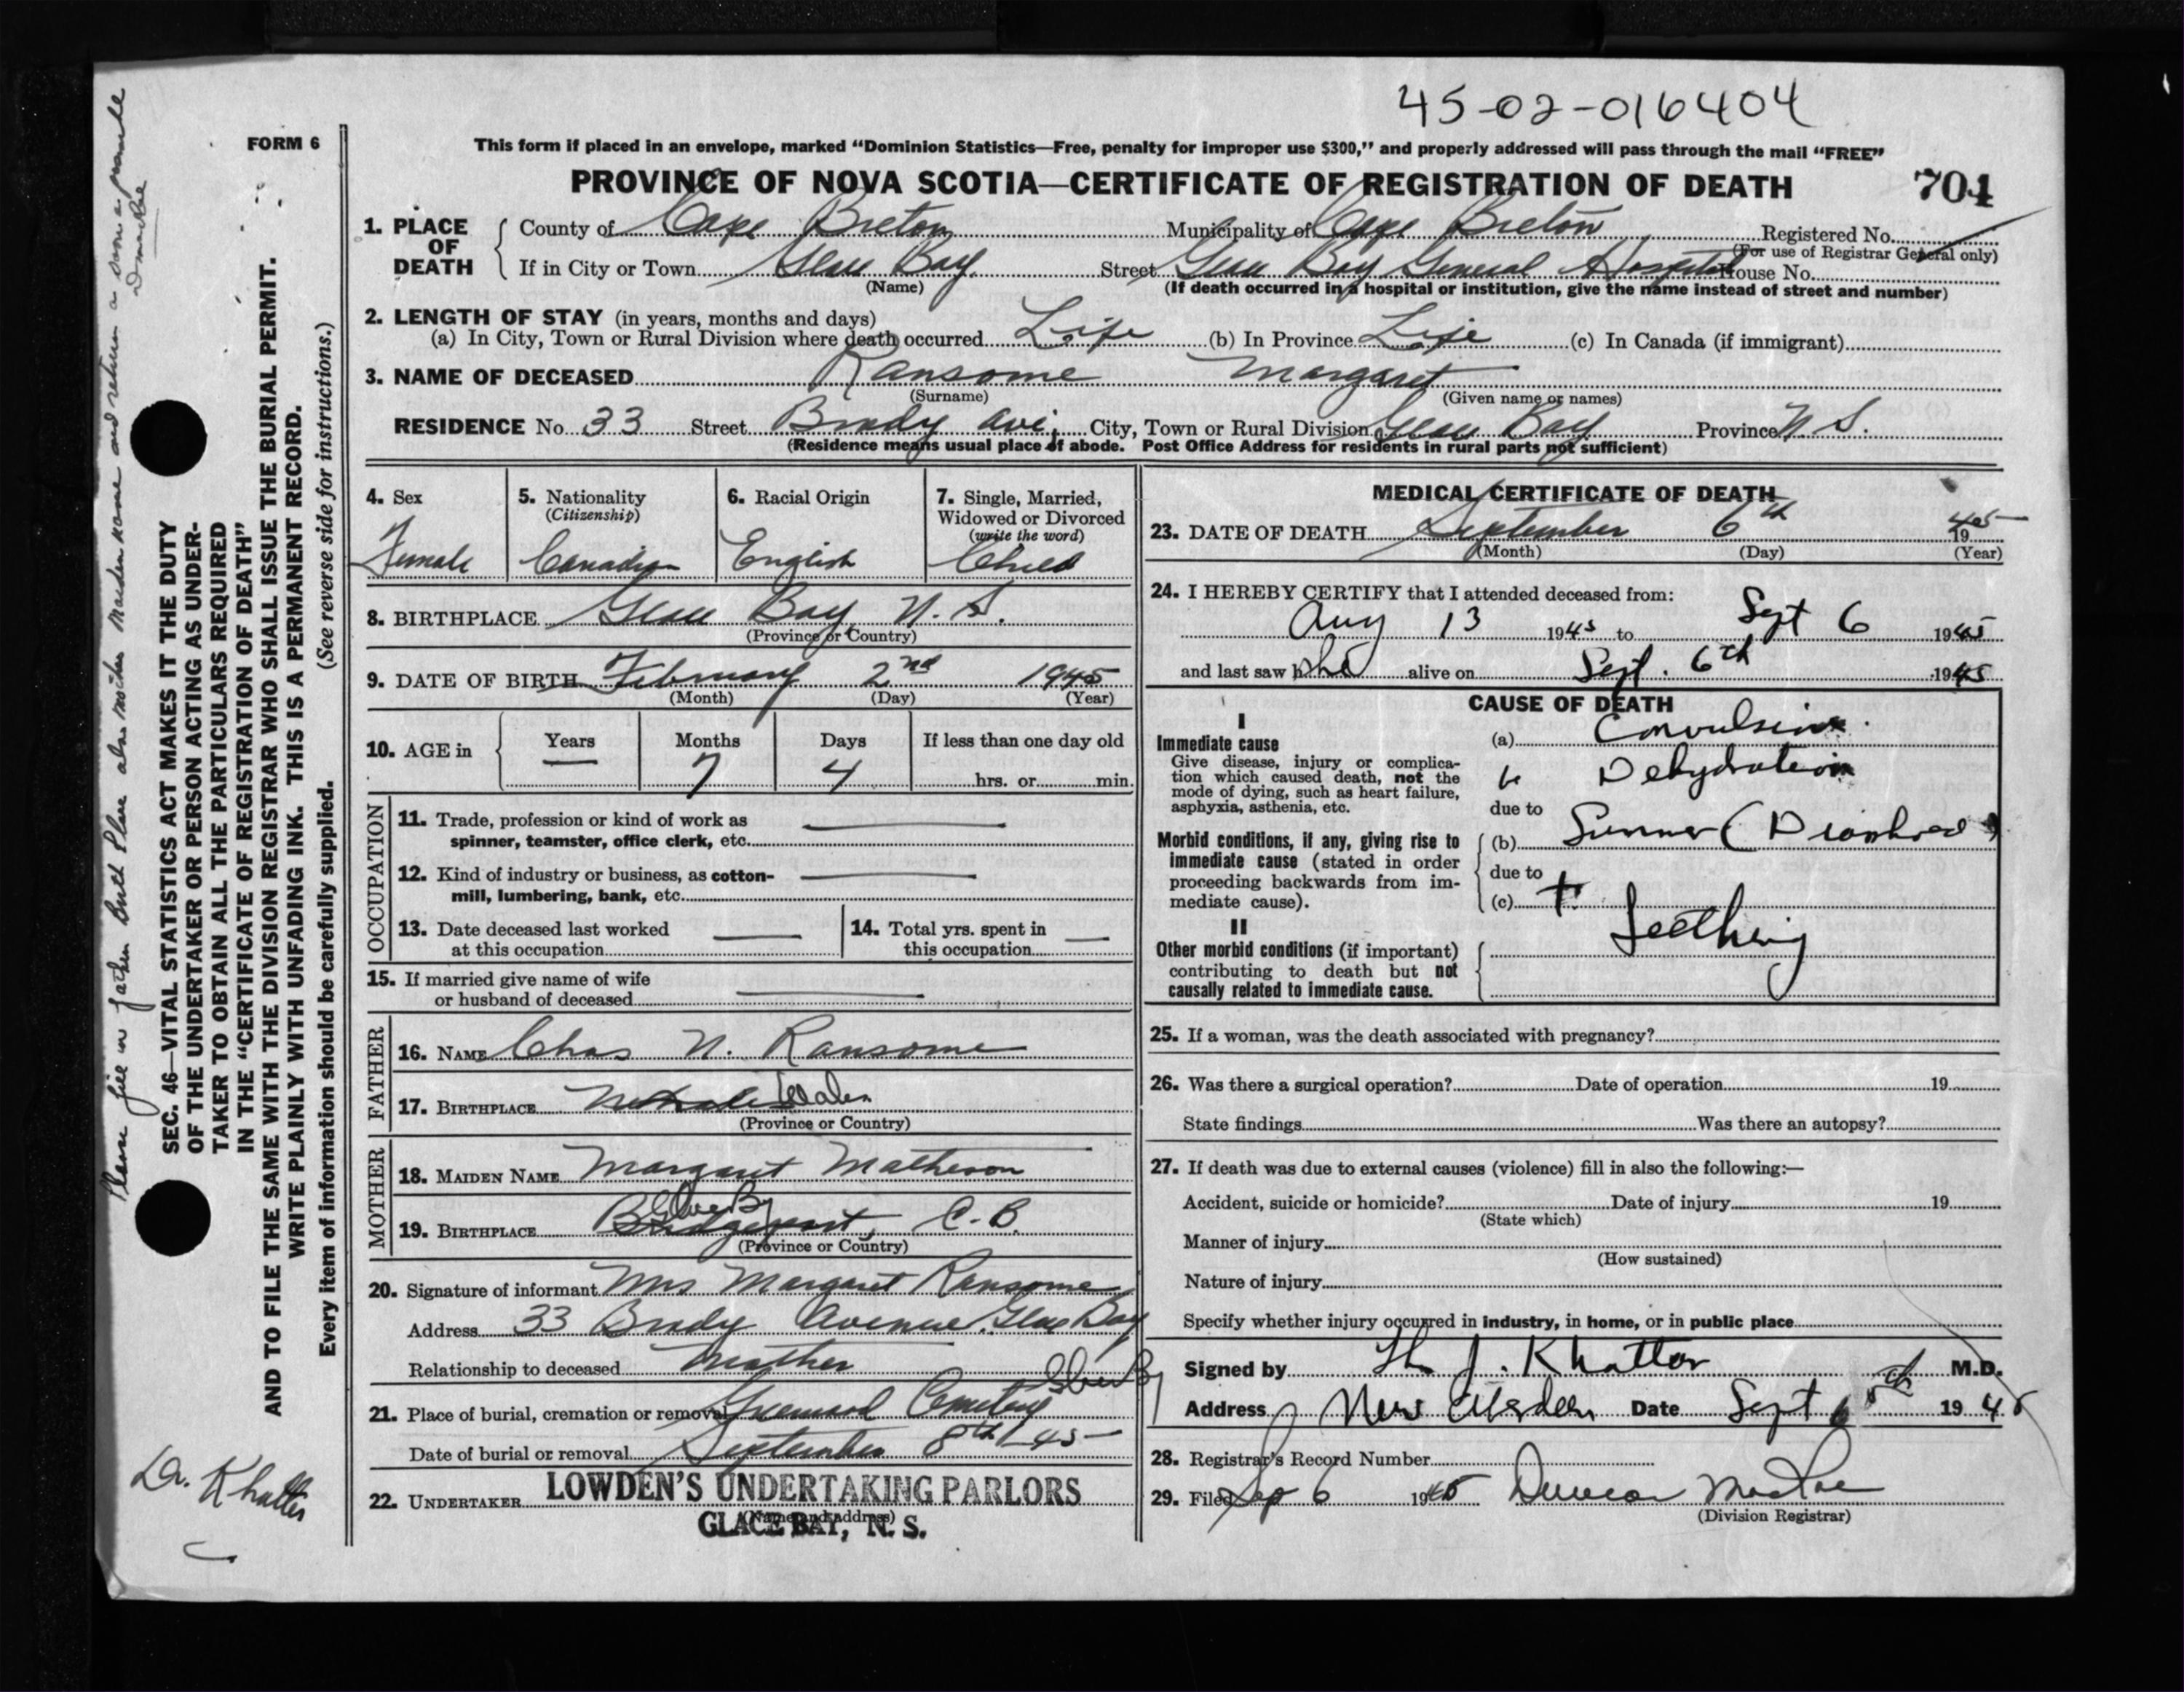 45-02-016404
FORM 6
This form if placed in an envelope, marked “Dominion Statistics—Free, penalty for improper use $300,” and properly addressed will pass through the mail “FREE”
PROVINCE OF NOVA SCOTIA—CERTIFICATE OF REGISTRATION OF DEATH 704
1. PLACE OF DEATH County of Cape Breton Municipality of Cape Breton Registered No.
(For use of Registrar General only)
If in City or Town Glace Bay Street Glace Bay General Hospital House No.
(Name) (If death occurred in a hospital or institution, give the name instead of street and number)
2. LENGTH OF STAY (in years, months and days)
(a) In City, Town or Rural Division where death occurred Life (b) In Province Life (c) In Canada (if immigrant)
3. NAME OF DECEASED Ransome Margaret
(Surname) (Given name or names)
RESIDENCE No. 33 Street Brody Ave. City, Town or Rural Division Glace Bay Province N. S.
(Residence means usual place of abode. Post Office Address for residents in rural parts not sufficient)
4. Sex Female
5. Nationality (Citizenship) Canadian
6. Racial Origin English
7. Single, Married, Widowed or Divorced (write the word) Child
8. BIRTHPLACE Glace Bay N. S.
(Province or Country)
9. DATE OF BIRTH February 2nd 1945
(Month) (Day) (Year)
10. AGE in Years — Months 7 Days 4 If less than one day old
hrs. or min.
OCCUPATION
11. Trade, profession or kind of work as
spinner, teamster, office clerk, etc.
12. Kind of industry or business, as cotton-
mill, lumbering, bank, etc.
13. Date deceased last worked
at this occupation
14. Total yrs. spent in
this occupation
15. If married give name of wife
or husband of deceased
FATHER
16. NAME Chas N. Ransome
17. BIRTHPLACE Wales
(Province or Country)
MOTHER
18. MAIDEN NAME Margaret Matheson
19. BIRTHPLACE Glace By Bridgeport, C.B.
(Province or Country)
20. Signature of informant Mrs Margaret Ransome
Address 33 Brody Avenue. Glace Bay
Relationship to deceased Mother
21. Place of burial, cremation or removal Greenwood Cemetery Glace By
Date of burial or removal September 8th/45
22. UNDERTAKER LOWDEN'S UNDERTAKING PARLORS
(Name and address)
GLACE BAY, N. S.
MEDICAL CERTIFICATE OF DEATH
23. DATE OF DEATH September 6th 1945
(Month) (Day) (Year)
24. I HEREBY CERTIFY that I attended deceased from:
Aug 13 1945 to Sept 6 1945
and last saw h she alive on Sept. 6th 1945
CAUSE OF DEATH
I
Immediate cause
Give disease, injury or complica-
tion which caused death, not the
mode of dying, such as heart failure,
asphyxia, asthenia, etc.
(a) Convulsions
Dehydration
due to
Morbid conditions, if any, giving rise to
immediate cause (stated in order
proceeding backwards from im-
mediate cause).
(b) Summer (Diarrhoea)
due to
(c) + Teething
II
Other morbid conditions (if important)
contributing to death but not
causally related to immediate cause.
25. If a woman, was the death associated with pregnancy?
26. Was there a surgical operation? Date of operation 19
State findings Was there an autopsy?
27. If death was due to external causes (violence) fill in also the following:—
Accident, suicide or homicide? Date of injury 19
(State which)
Manner of injury
(How sustained)
Nature of injury
Specify whether injury occurred in industry, in home, or in public place
Signed by Th J. Khattar M.D.
Address New Aberdeen Date Sept 1945
28. Registrar's Record Number
29. Filed Sep 6 1945 Duncan MacRae
(Division Registrar)
Please fill in father Birth Place also mother Maiden Name and return as soon as possible
D MacRae
SEC. 46—VITAL STATISTICS ACT MAKES IT THE DUTY
OF THE UNDERTAKER OR PERSON ACTING AS UNDER-
TAKER TO OBTAIN ALL THE PARTICULARS REQUIRED
IN THE “CERTIFICATE OF REGISTRATION OF DEATH”
AND TO FILE THE SAME WITH THE DIVISION REGISTRAR WHO SHALL ISSUE THE BURIAL PERMIT.
WRITE PLAINLY WITH UNFADING INK. THIS IS A PERMANENT RECORD.
Every item of information should be carefully supplied. (See reverse side for instructions.)
Dr. Khatter